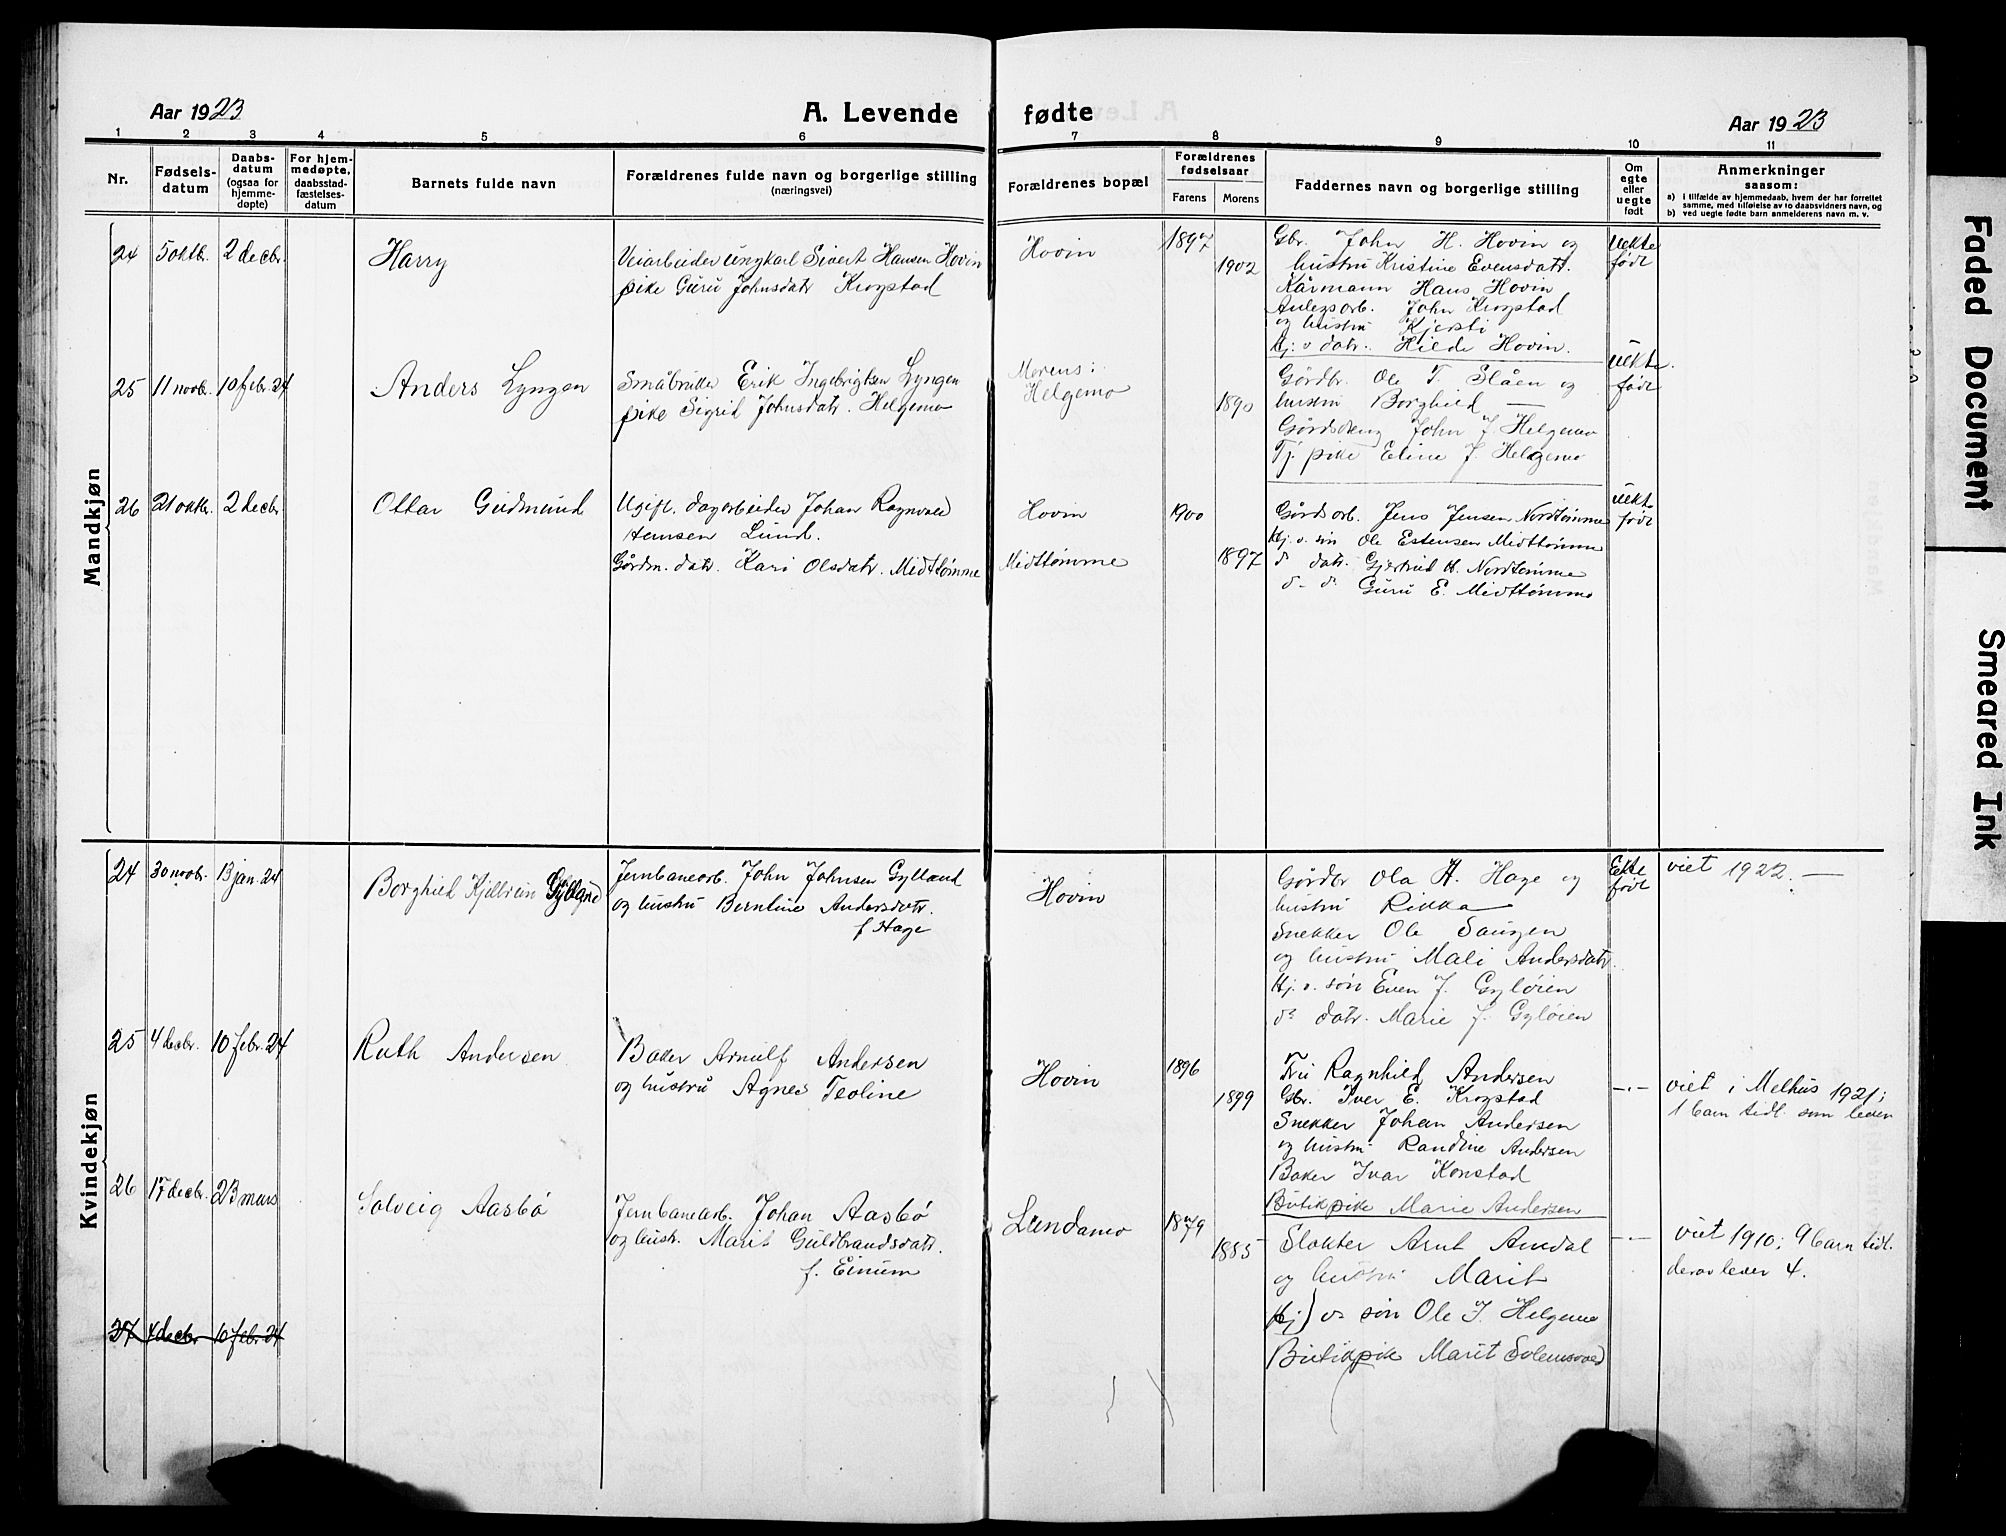 Aar 1923
A. Levende fødte
Aar 1923
1 2 3 4 5 6 7 8 9 10 11
Nr.
Fødsels-
datum
Daabs-
datum
(ogsaa for
hjemme-
døpte)
For hjem-
medøpte,
daabsstad-
fæstelses-
datum
Barnets fulde navn
Forældrenes fulde navn og borgerlige stilling
(næringsvei)
Forældrenes bopæl
Forældrenes
fødselsaar
Farens Morens
Faddernes navn og borgerlige stilling
Om
egte
eller
uegte
født
Anmerkninger
saasom:
a) i tilfælde av hjemmedaab, hvem der har forrettet
samme, med tilføielse av to daabsvidners navn, og
b) ved uegte fødte barn anmelderens navn m. v.
Mandkjøn
24 5 oktb. 2 decbr. Harry
Veiarbeider ungkarl Sivert Hansen Hovin
pike Guru Johnsdatr Krogstad
Hovin
1897
1902
Gbr. John H. Hovin og
hustru Kristine Evensdatr.
Kårmann Hans Hovin
Anlegsarb. John Krogstad
og hustru Kjersti
Hj. v datr. Hilde Hovin.
Uekte
født
25 11 novb. 10 febr. 24 Anders Lyngen
Småbruker Erik Ingebrigtsen Lyngen
pike Sigrid Johnsdatr. Helgemo
Morens:
Helgemo
1890
Gårdbr. Ole T. Slåen og
hustru Borghild —
Gårdsdreng John J. Helgemo
Tj. pike Eline J. Helgemo
Uekte
født
26 21 oktbr. 2 decbr Ottar Gudmund
Ugift. dagarbeider Johan Ragnvald
Hemsen Lund.
Gårdm. datr. Kari Olsdatr. Midttømme
Hovin
Midttømme
1900
1897
Gårdsarb. Jens Jensen Nordtømme
Hj. v. søn Ole Estensen Midttømme
d datr. Gjertrud H. Nordtømme
d - d Guru E. Midttømme
Uekte
født
Kvindekjøn
24 30 novb. 13 jan. 24 Borghild Kjellrein Gylland
Jernbanearb. John Johnsen Gylland
og hustru Berntine Andersdatr.
f Hage
Hovin
Gårdbr Ola H. Hage og
hustru Rikka
Snekker Ole Saugen
og hustru Mali Andersdatr.
Hj. v. søn Even J. Gyløien
d: datr. Marie J. Gyløien
Ekte
født
viet 1922. —
25 4 decbr. 10 febr. 24 Ruth Andersen
Baker Arnulf Andersen
og hustru Agnes Teoline
Hovin
1896
1899
Fru Ragnhild Andersen
Gbr. Iver E. Krogstad
Snekker Johan Andersen
og hustru Randine Andersen
Baker Ivar Konstad
Butikpike Marie Andersen
—"—
viet i Melhus 1921;
1 barn tidl. som lever
26 17 decbr. 23 mars Solveig Aasbø
Jernbanearb. Johan Aasbø
og hustr. Marit Guldbrandsdatr.
f. Einum
Lundamo
1879
1885
Slakter Arnt Amdal
og hustru Marit
Hj) v. søn Ole J. Helgemo
Butikpik Marit Solemsvaad
—"—
viet 1910; 9 barn tidl.
derav lever 4.
27 4 decbr 10 febr. 24
Faded Document
Smeared Ink